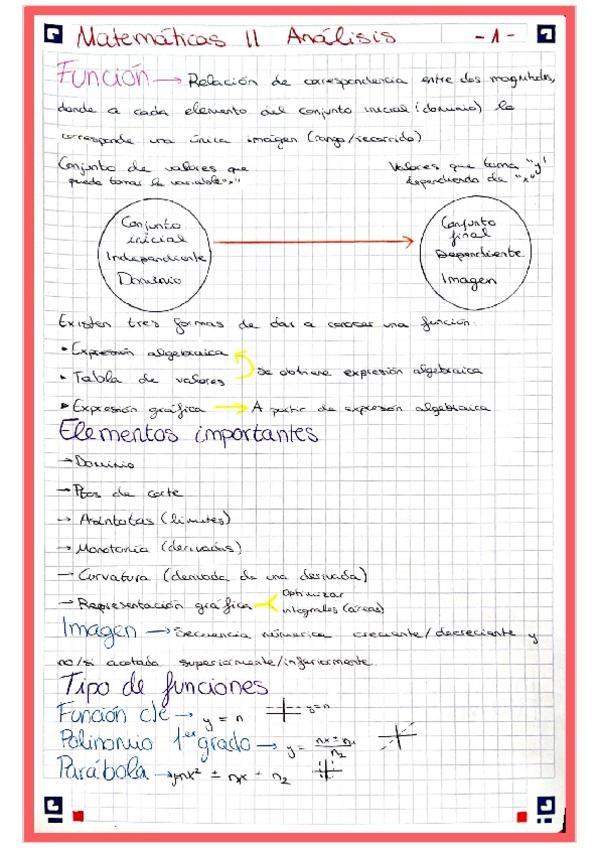 Matemáticas II Análisis -1-
Función → Relación de correspondencia entre dos magnitudes,
donde a cada elemento del conjunto inicial (dominio) le
corresponde una única imagen (rango/recorrido)
Conjunto de valores que
puede tomar la variable "x"
Valores que toma "y"
dependiendo de "x"
Conjunto
inicial
Independiente
Dominio
Conjunto
final
Dependiente
Imagen
Existen tres formas de dar a conocer una función:
• Expresión algebraica
• Tabla de valores
Se obtiene expresión algebraica
• Expresión gráfica → A partir de expresión algebraica
Elementos importantes
→ Dominio
→ Ptos de corte
→ Asíntotas (límites)
→ Monotonía (derivadas)
→ Curvatura (derivada de una derivada)
→ Representación gráfica
Optimizar
integrales (áreas)
Imagen → Secuencia númerica creciente/decreciente y
no/si acotada superiormente/inferiormente.
Tipo de funciones
Función cte → y = n y=n
Polinomio 1er grado → y =
Parábola →